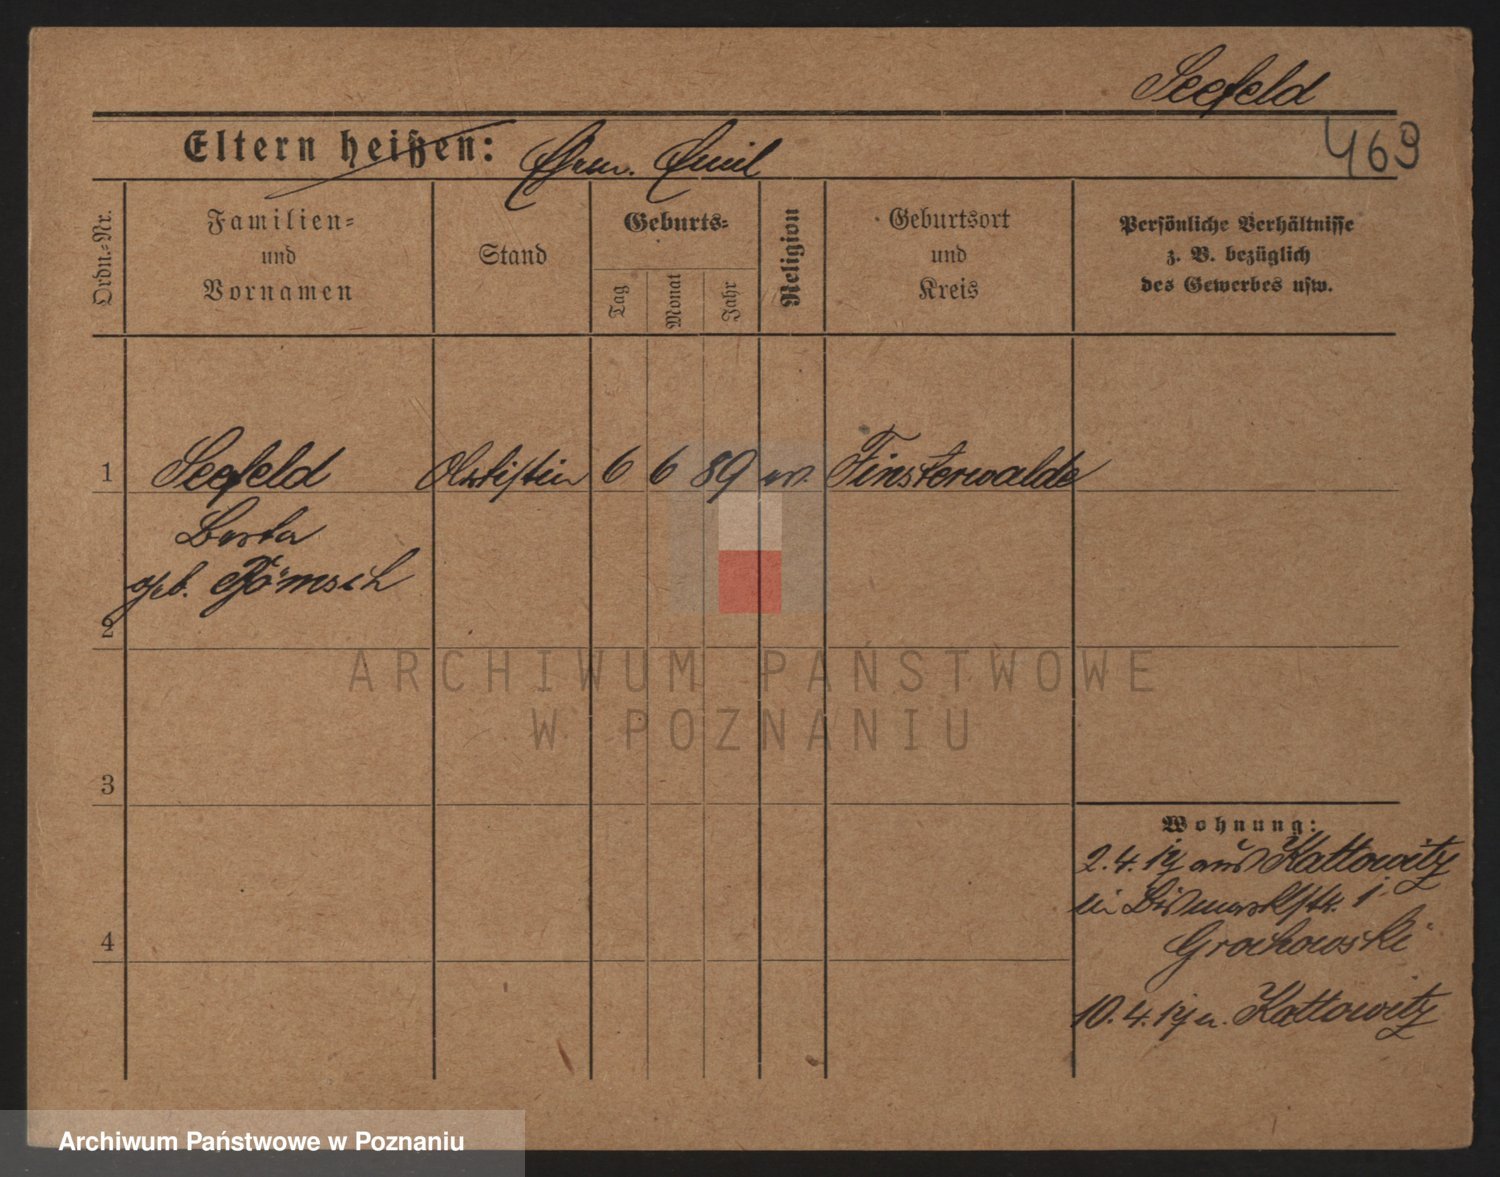 Seefeld
469
Eltern heißen: Ehem. Emil
Ordn.-Nr.
Familien-
und
Vornamen
Stand
Geburts-
Tag
Monat
Jahr
Religion
Geburtsort
und
Kreis
Persönliche Verhältnisse
z. B. bezüglich
des Gewerbes usw.
1 Seefeld Artistin 6 6 89 ev. Finsterwalde
Berta
geb. Römsch
2
3
4
Wohnung:
2.4.19 aus Kattowitz
in Bismarckstr. 1
Grochowski
10.4.19 n. Kattowitz
ARCHIWUM PAŃSTWOWE
W POZNANIU
Archiwum Państwowe w Poznaniu